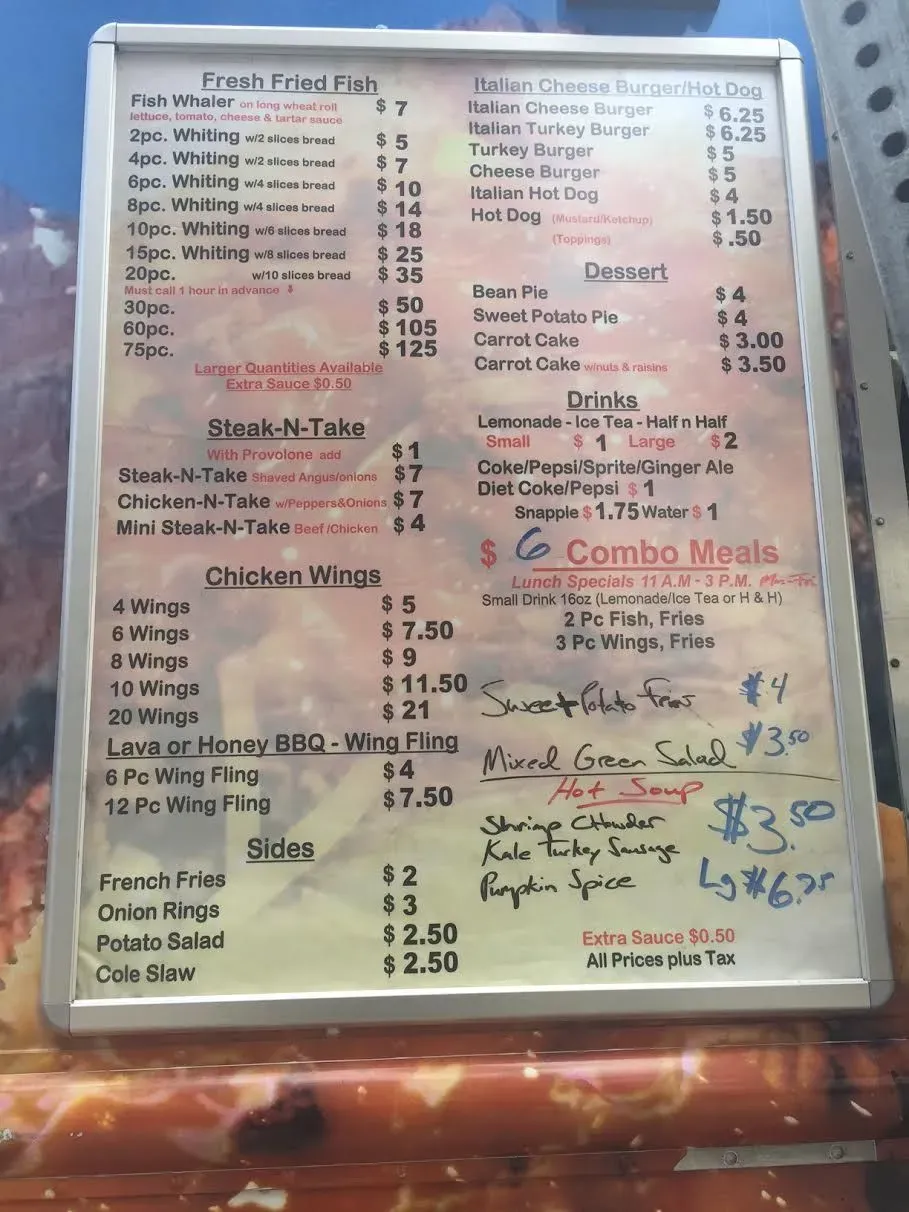 Fresh Fried Fish
Fish Whaler on long wheat roll $ 7
lettuce, tomato, cheese & tartar sauce
2pc. Whiting w/2 slices bread $ 5
4pc. Whiting w/2 slices bread $ 7
6pc. Whiting w/4 slices bread $ 10
8pc. Whiting w/4 slices bread $ 14
10pc. Whiting w/6 slices bread $ 18
15pc. Whiting w/8 slices bread $ 25
20pc. w/10 slices bread $ 35
Must call 1 hour in advance ⬇
30pc. $ 50
60pc. $ 105
75pc. $ 125
Larger Quantities Available
Extra Sauce $0.50
Steak-N-Take
With Provolone add $ 1
Steak-N-Take Shaved Angus/onions $ 7
Chicken-N-Take w/Peppers&Onions $ 7
Mini Steak-N-Take Beef /Chicken $ 4
Chicken Wings
4 Wings $ 5
6 Wings $ 7.50
8 Wings $ 9
10 Wings $ 11.50
20 Wings $ 21
Lava or Honey BBQ - Wing Fling
6 Pc Wing Fling $ 4
12 Pc Wing Fling $ 7.50
Sides
French Fries $ 2
Onion Rings $ 3
Potato Salad $ 2.50
Cole Slaw $ 2.50
Italian Cheese Burger/Hot Dog
Italian Cheese Burger $ 6.25
Italian Turkey Burger $ 6.25
Turkey Burger $ 5
Cheese Burger $ 5
Italian Hot Dog $ 4
Hot Dog (Mustard/Ketchup) $ 1.50
(Toppings) $ .50
Dessert
Bean Pie $ 4
Sweet Potato Pie $ 4
Carrot Cake $ 3.00
Carrot Cake w/nuts & raisins $ 3.50
Drinks
Lemonade - Ice Tea - Half n Half
Small $ 1 Large $ 2
Coke/Pepsi/Sprite/Ginger Ale
Diet Coke/Pepsi $ 1
Snapple $ 1.75 Water $ 1
$ 6 Combo Meals
Lunch Specials 11 A.M - 3 P.M. Mon-Fri
Small Drink 16oz (Lemonade/Ice Tea or H & H)
2 Pc Fish, Fries
3 Pc Wings, Fries
Sweet Potato Fries $4
Mixed Green Salad $3.50
Hot Soup
Shrimp Chowder $3.50
Kale Turkey Sausage
Pumpkin Spice Lg $6.25
Extra Sauce $0.50
All Prices plus Tax